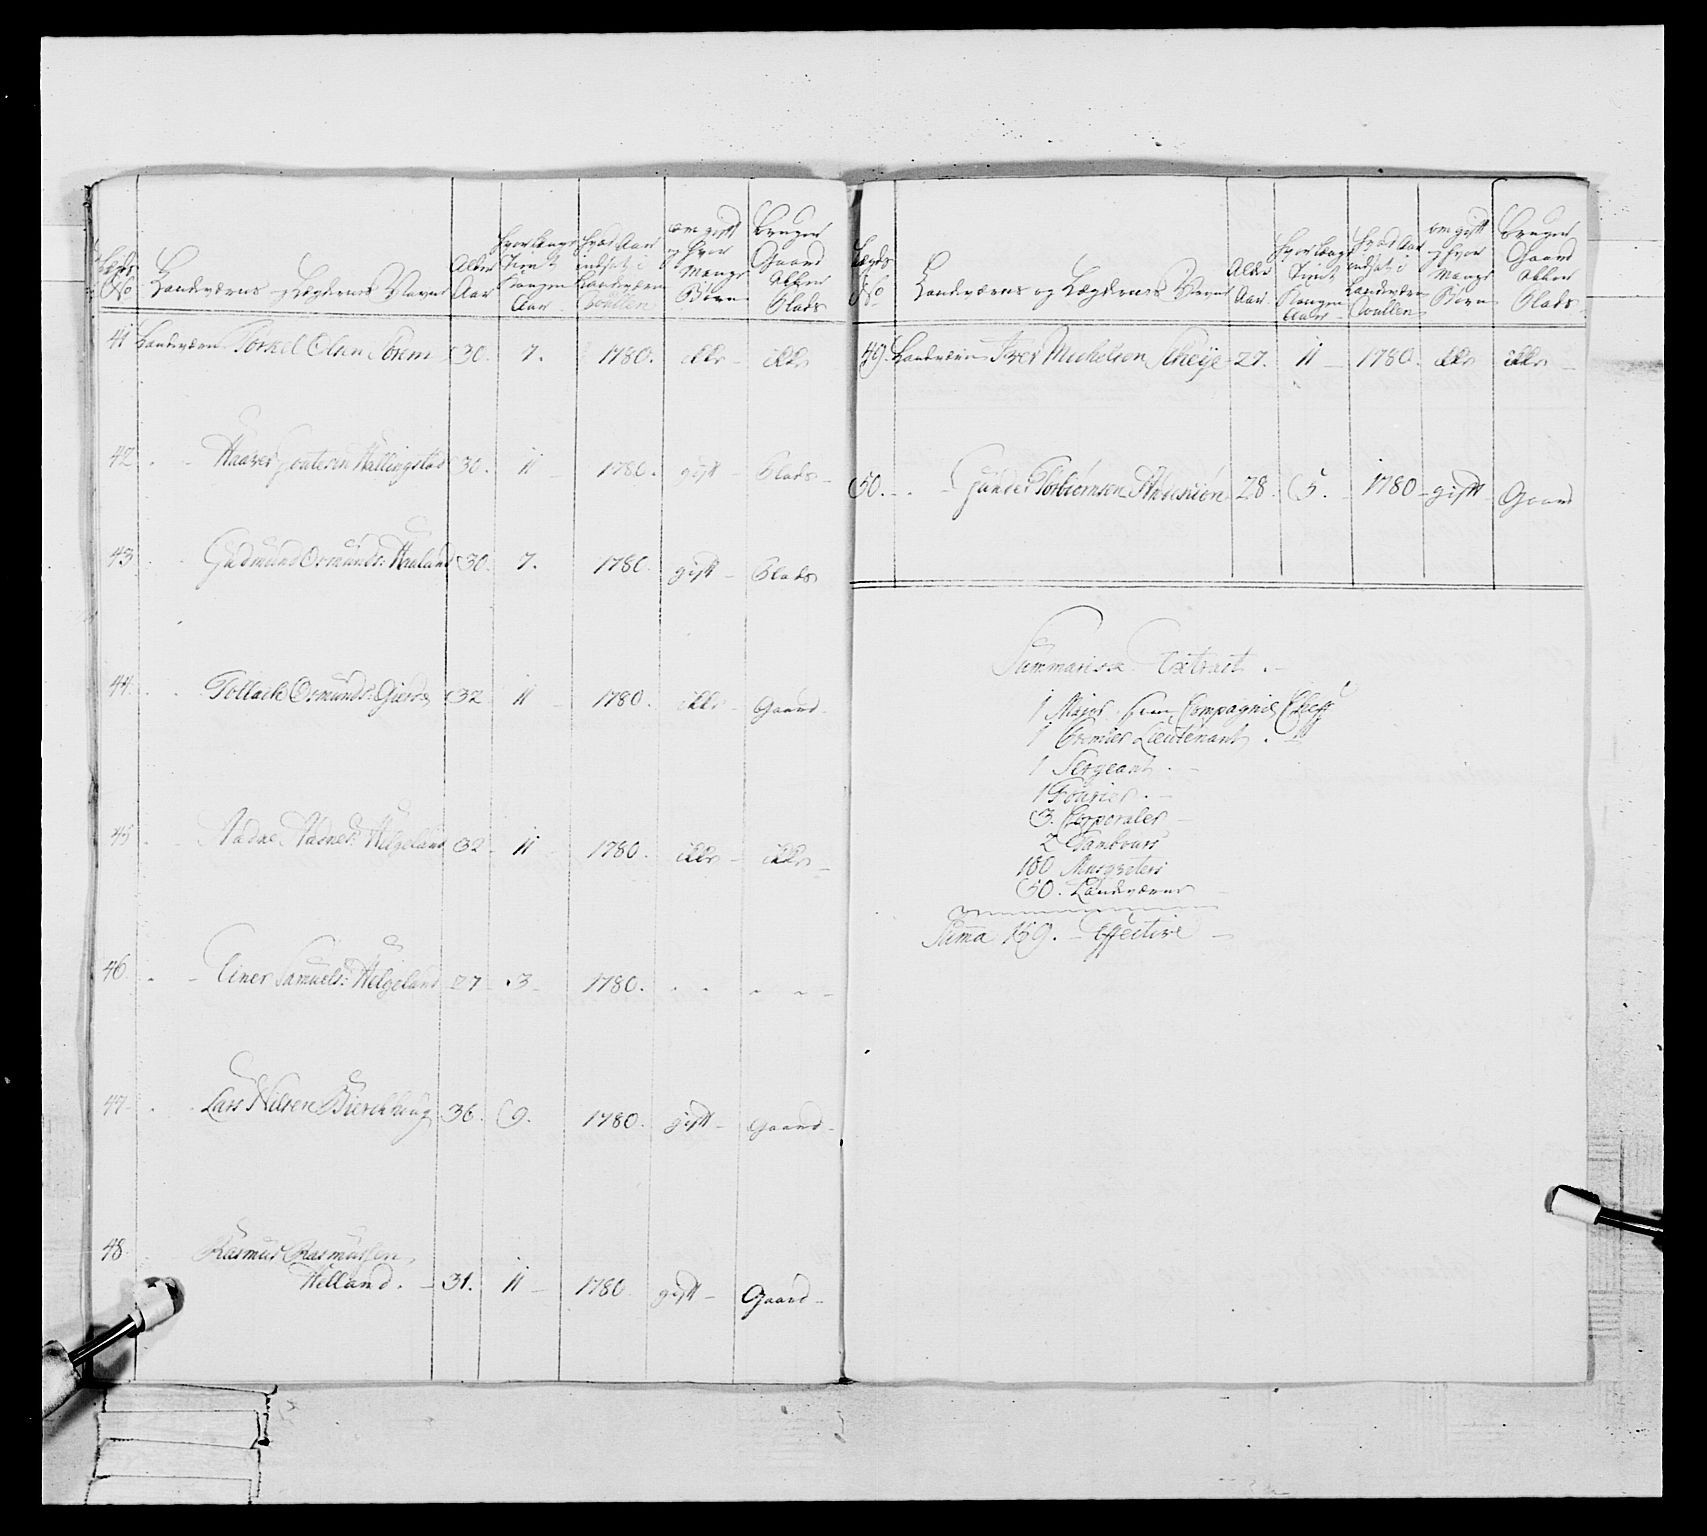 Lægds No
Landværns og Lægdernes Navne
Alder Aar
Hvor længe Tient Kongen Aar
Hvad Aar indsat i Landværn Roullen
om gift og hvor Mange Børn
Bruger Gaard eller Plads
41 Landværn Torkel Olsen 30. 7. 1780. ikke ikke
42 - - Hallingstad 30. 11 1780. gift Plads
43 - - Gudmund Ormunds: Haaland 30. 7. 1780. gift Plads
44. - - Tollack Ormunds: 32 11 1780. ikke Gaard
45 - - Aadne Aadnes: Helgeland 32 11 1780. ikke ikke
46 - - Einer Samuels: Helgeland 27 3 1780. - - - -
47 - - Lars Nilsen Bierckhoug 36. 9. 1780. gift Gaard
48 - - Rasmus Rasmussen
Helland. 31. 11 1780. gift Gaard
Lægds No
Landværns og Lægdernes Navne
Alder Aar
Hvor længe Tient Kongen Aar
Hvad Aar indsat i Landværn Roullen
om gift og hvor Mange Børn
Bruger Gaard eller Plads
49. Landværn Iver Michelsen 27. 11 1780. ikke ikke
50. - - Gunder Torbiørnsen 28. 5. 1780 gift Gaard
Summarisk Extract.
1 Major som Compagnie Cheff
1 Premier Lieutenant.
1 Sergeant.
1 Fourier.
3. Corporaler
2 Tambours
100 Musqveteri
50. Landværn
Summa 159. Effective